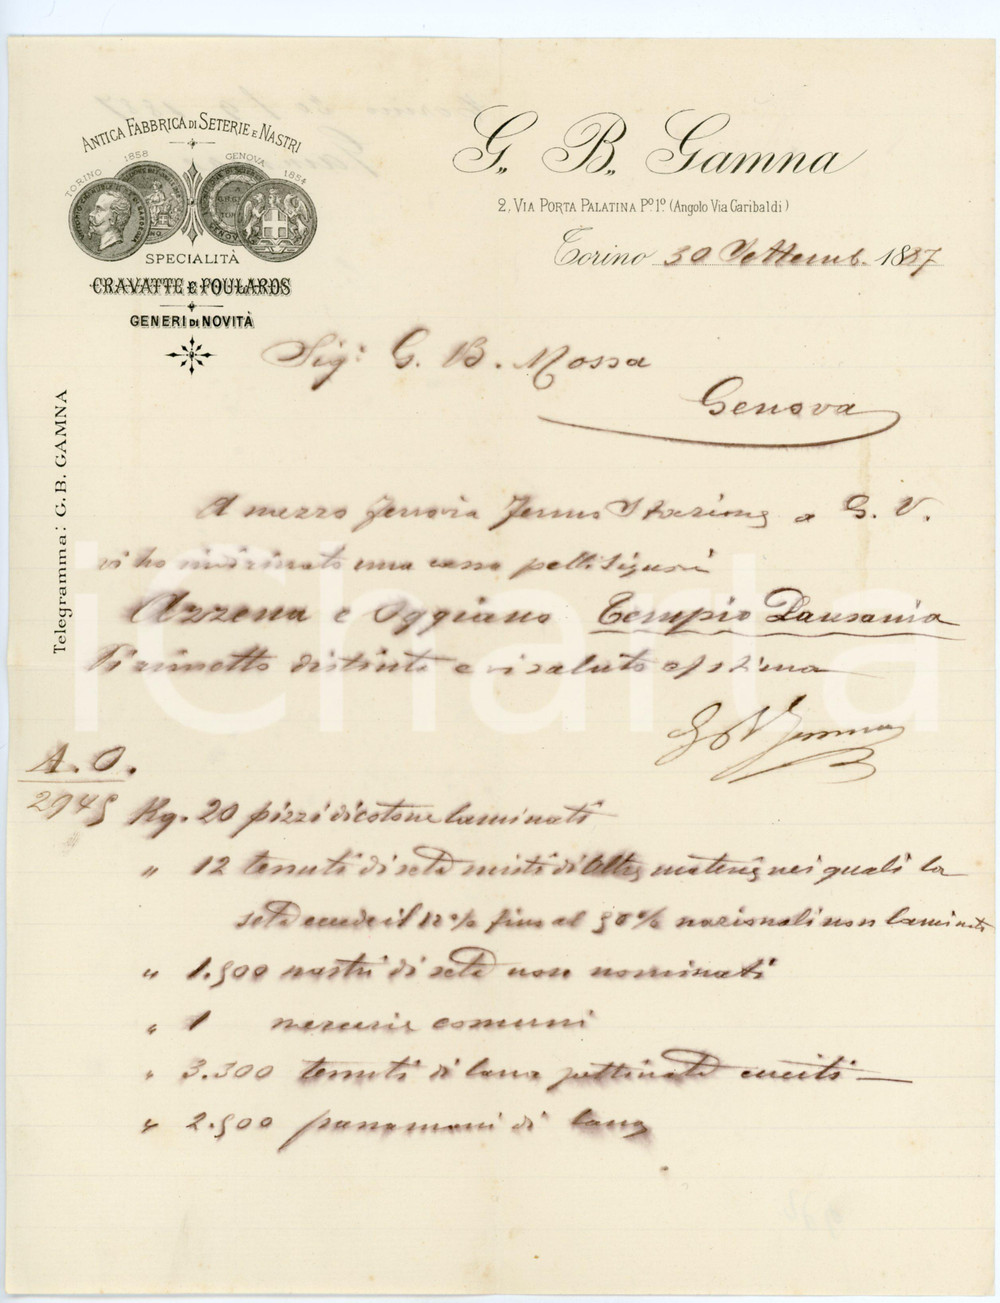 ANTICA FABBRICA DI SETERIE E NASTRI
TORINO 1858 GENOVA 1854
SPECIALITÀ
CRAVATTE E FOULARDS
GENERI DI NOVITÀ
G. B. Gamna
2, VIA PORTA PALATINA Pº 1º (Angolo Via Garibaldi)
Torino 30 Settemb. 1887
Sig: G. B. Mossa
Genova
Telegramma: G. B. GAMNA
A mezzo ferrovia Stazione a G. V.
vi ho una cassa pelli Siguri
Azzena e Oggiano Tempio Pausania
Vi rimetto distinta e vi saluto
G B Gamna
A. O.
2945 Kg. 20 pizzi di cotone laminati
" 12 tessuti di seta misti di altre materie nei quali la
seta eccede il 12 % fino al 50 % nazionali non laminati
" 1.500 nastri di seta non nominati
" 1 mercerie comuni
" 3.300 tessuti di lana pettinata cuciti
" 2.500 passamani di lana
iCharta